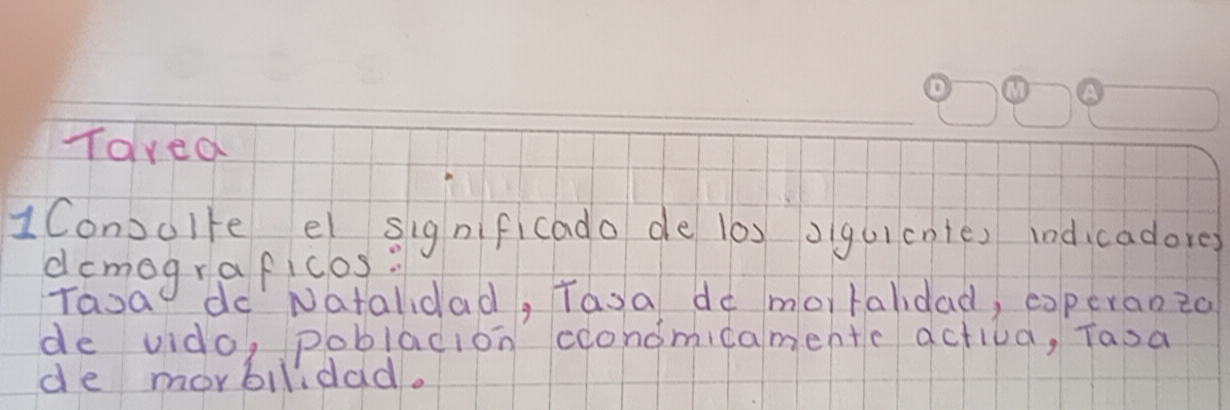 D M A
Tarea
1 Consulte el significado de los siguientes indicadores
demograficos:
Tasa de Natalidad, Tasa de mortalidad, esperanza
de vida, población económicamente activa, Tasa
de morbilidad.